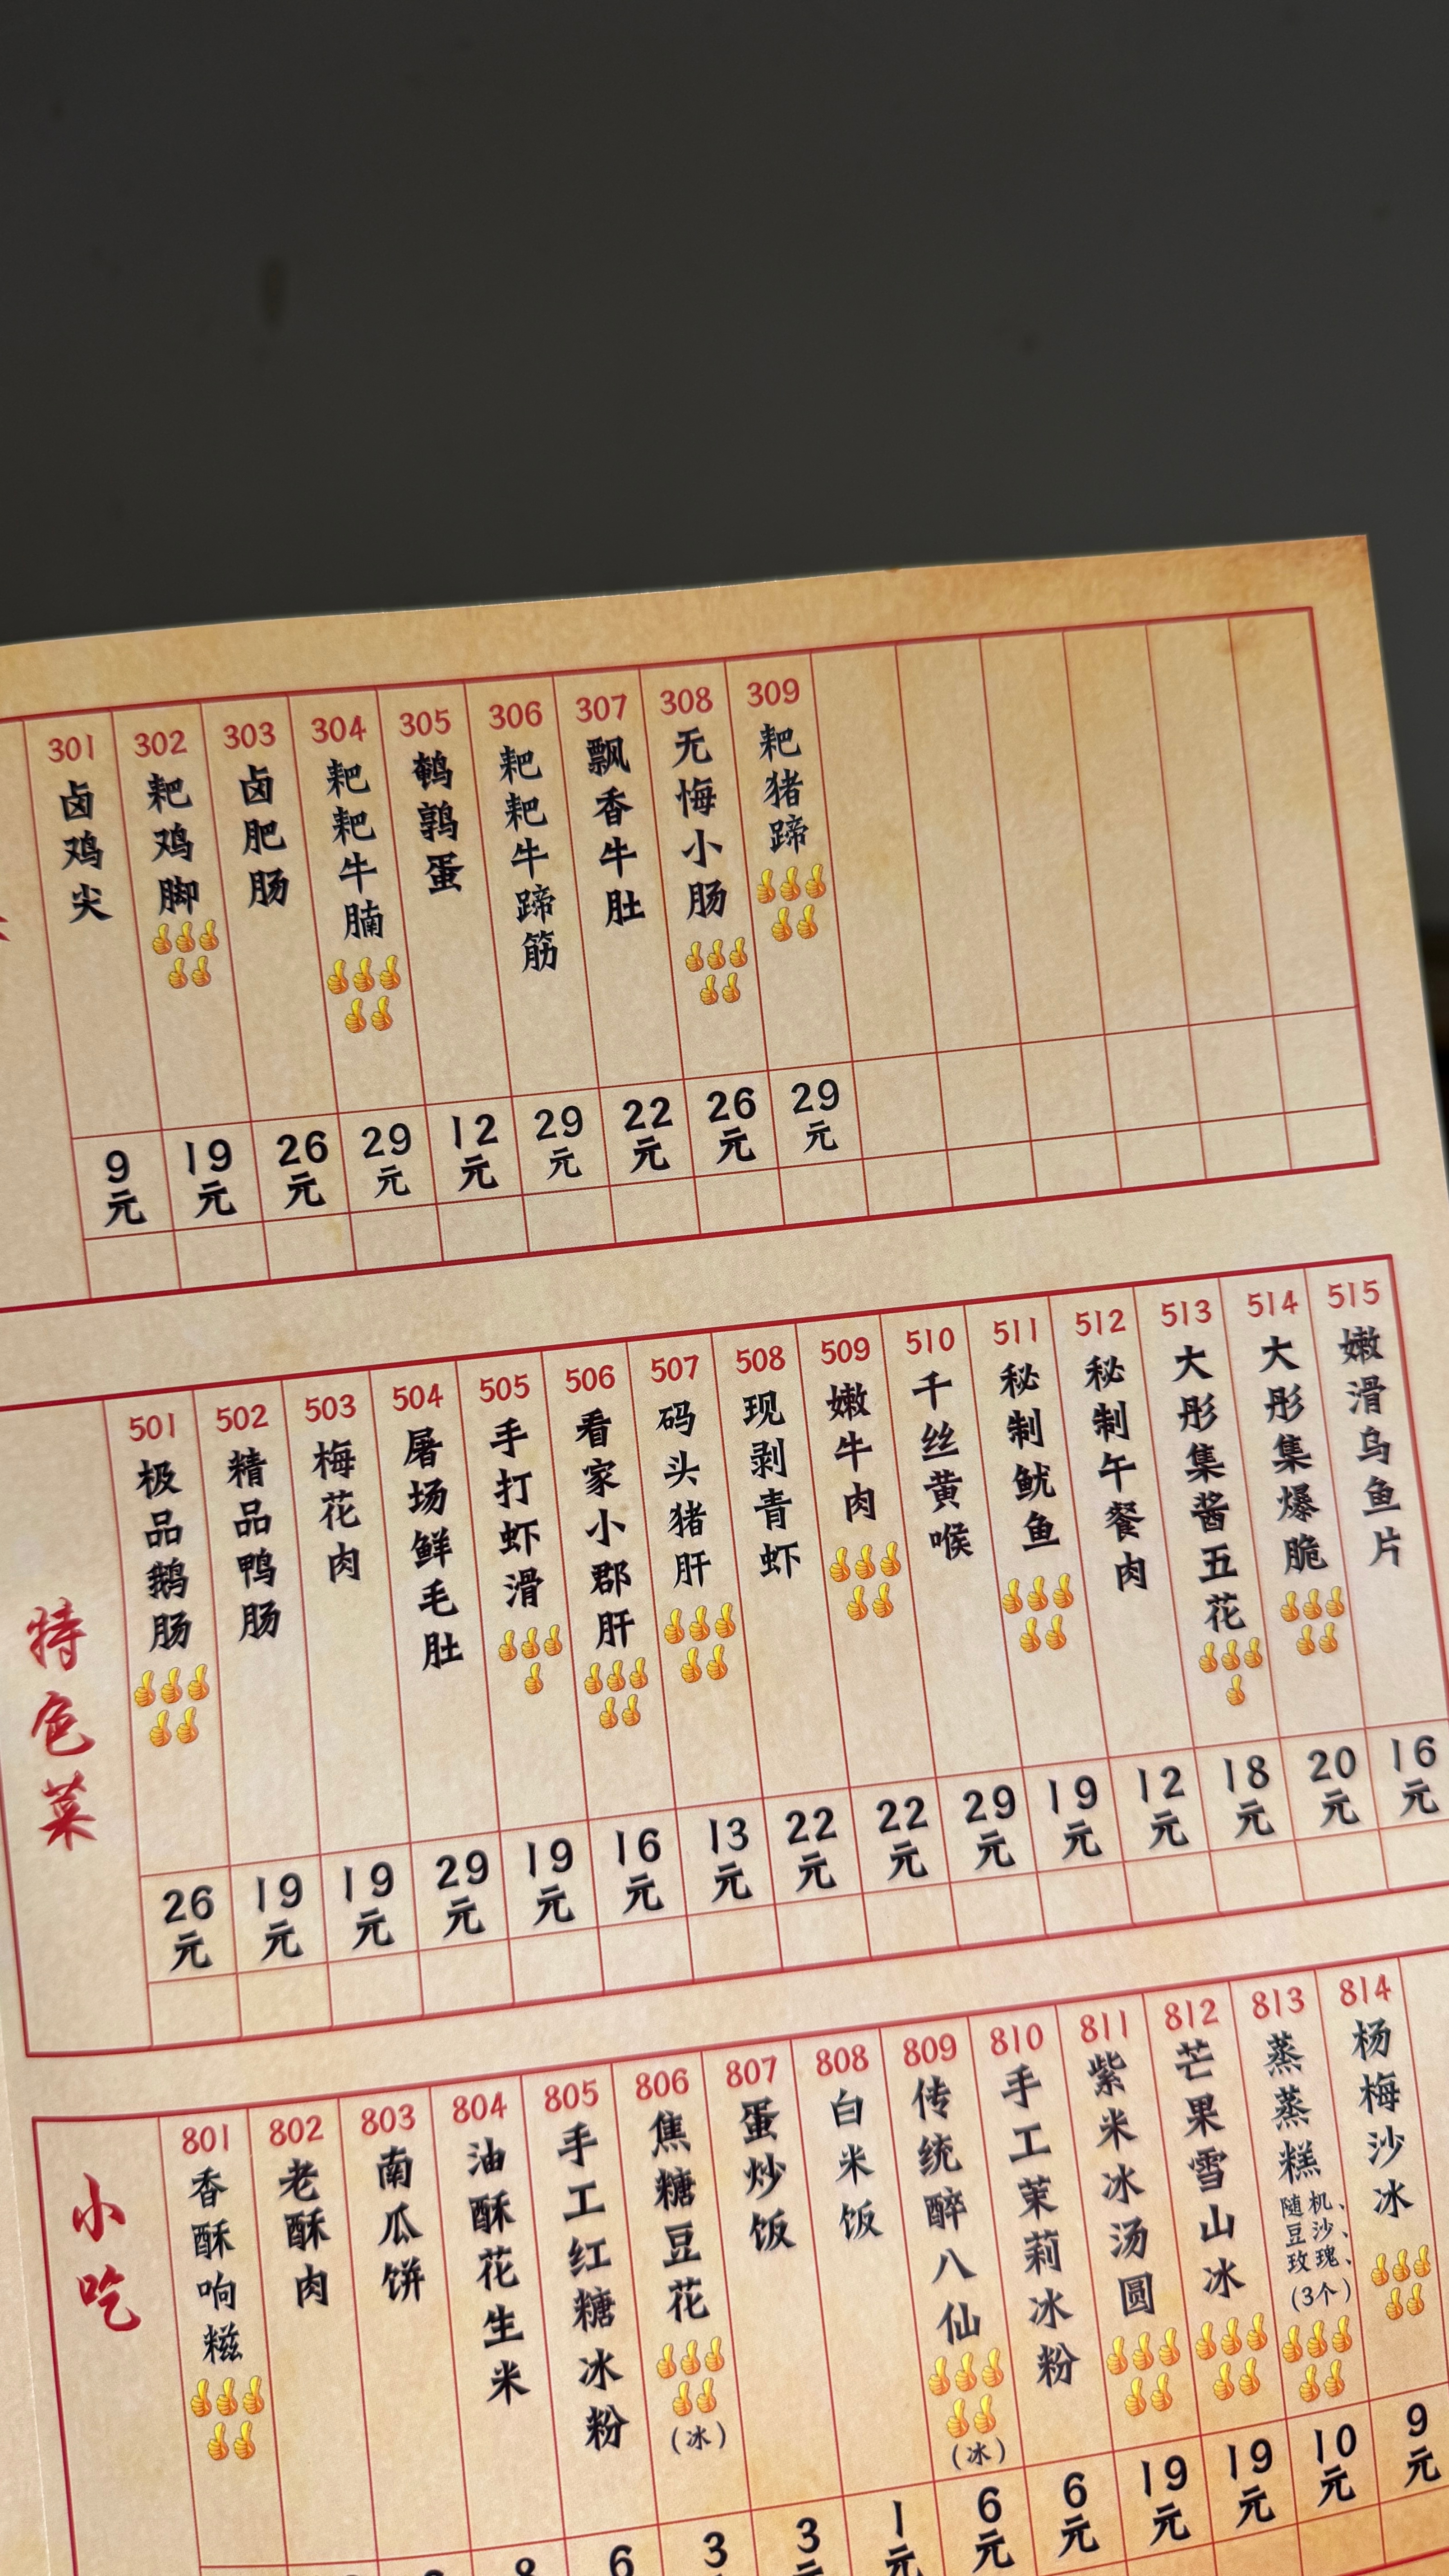 301
卤鸡尖
9元
302
耙鸡脚
19元
303
卤肥肠
26元
304
耙耙牛腩
29元
305
鹌鹑蛋
12元
306
耙耙牛蹄筋
29元
307
飘香牛肚
22元
308
无悔小肠
26元
309
耙猪蹄
29元
特色菜
501
极品鹅肠
26元
502
精品鸭肠
19元
503
梅花肉
19元
504
屠场鲜毛肚
29元
505
手打虾滑
19元
506
看家小郡肝
16元
507
码头猪肝
13元
508
现剥青虾
22元
509
嫩牛肉
22元
510
千丝黄喉
29元
511
秘制鱿鱼
19元
512
秘制午餐肉
12元
513
大彤集酱五花
18元
514
大彤集爆脆
20元
515
嫩滑乌鱼片
16元
小吃
801
香酥响糍
802
老酥肉
803
南瓜饼
804
油酥花生米
8
805
手工红糖冰粉
6
806
焦糖豆花
(冰)
3
807
蛋炒饭
3元
808
白米饭
1元
809
传统醉八仙
(冰)
6元
810
手工茉莉冰粉
6元
811
紫米冰汤圆
19元
812
芒果雪山冰
19元
813
蒸蒸糕
随机、
豆沙、
玫瑰、
(3个)
10元
814
杨梅沙冰
9元